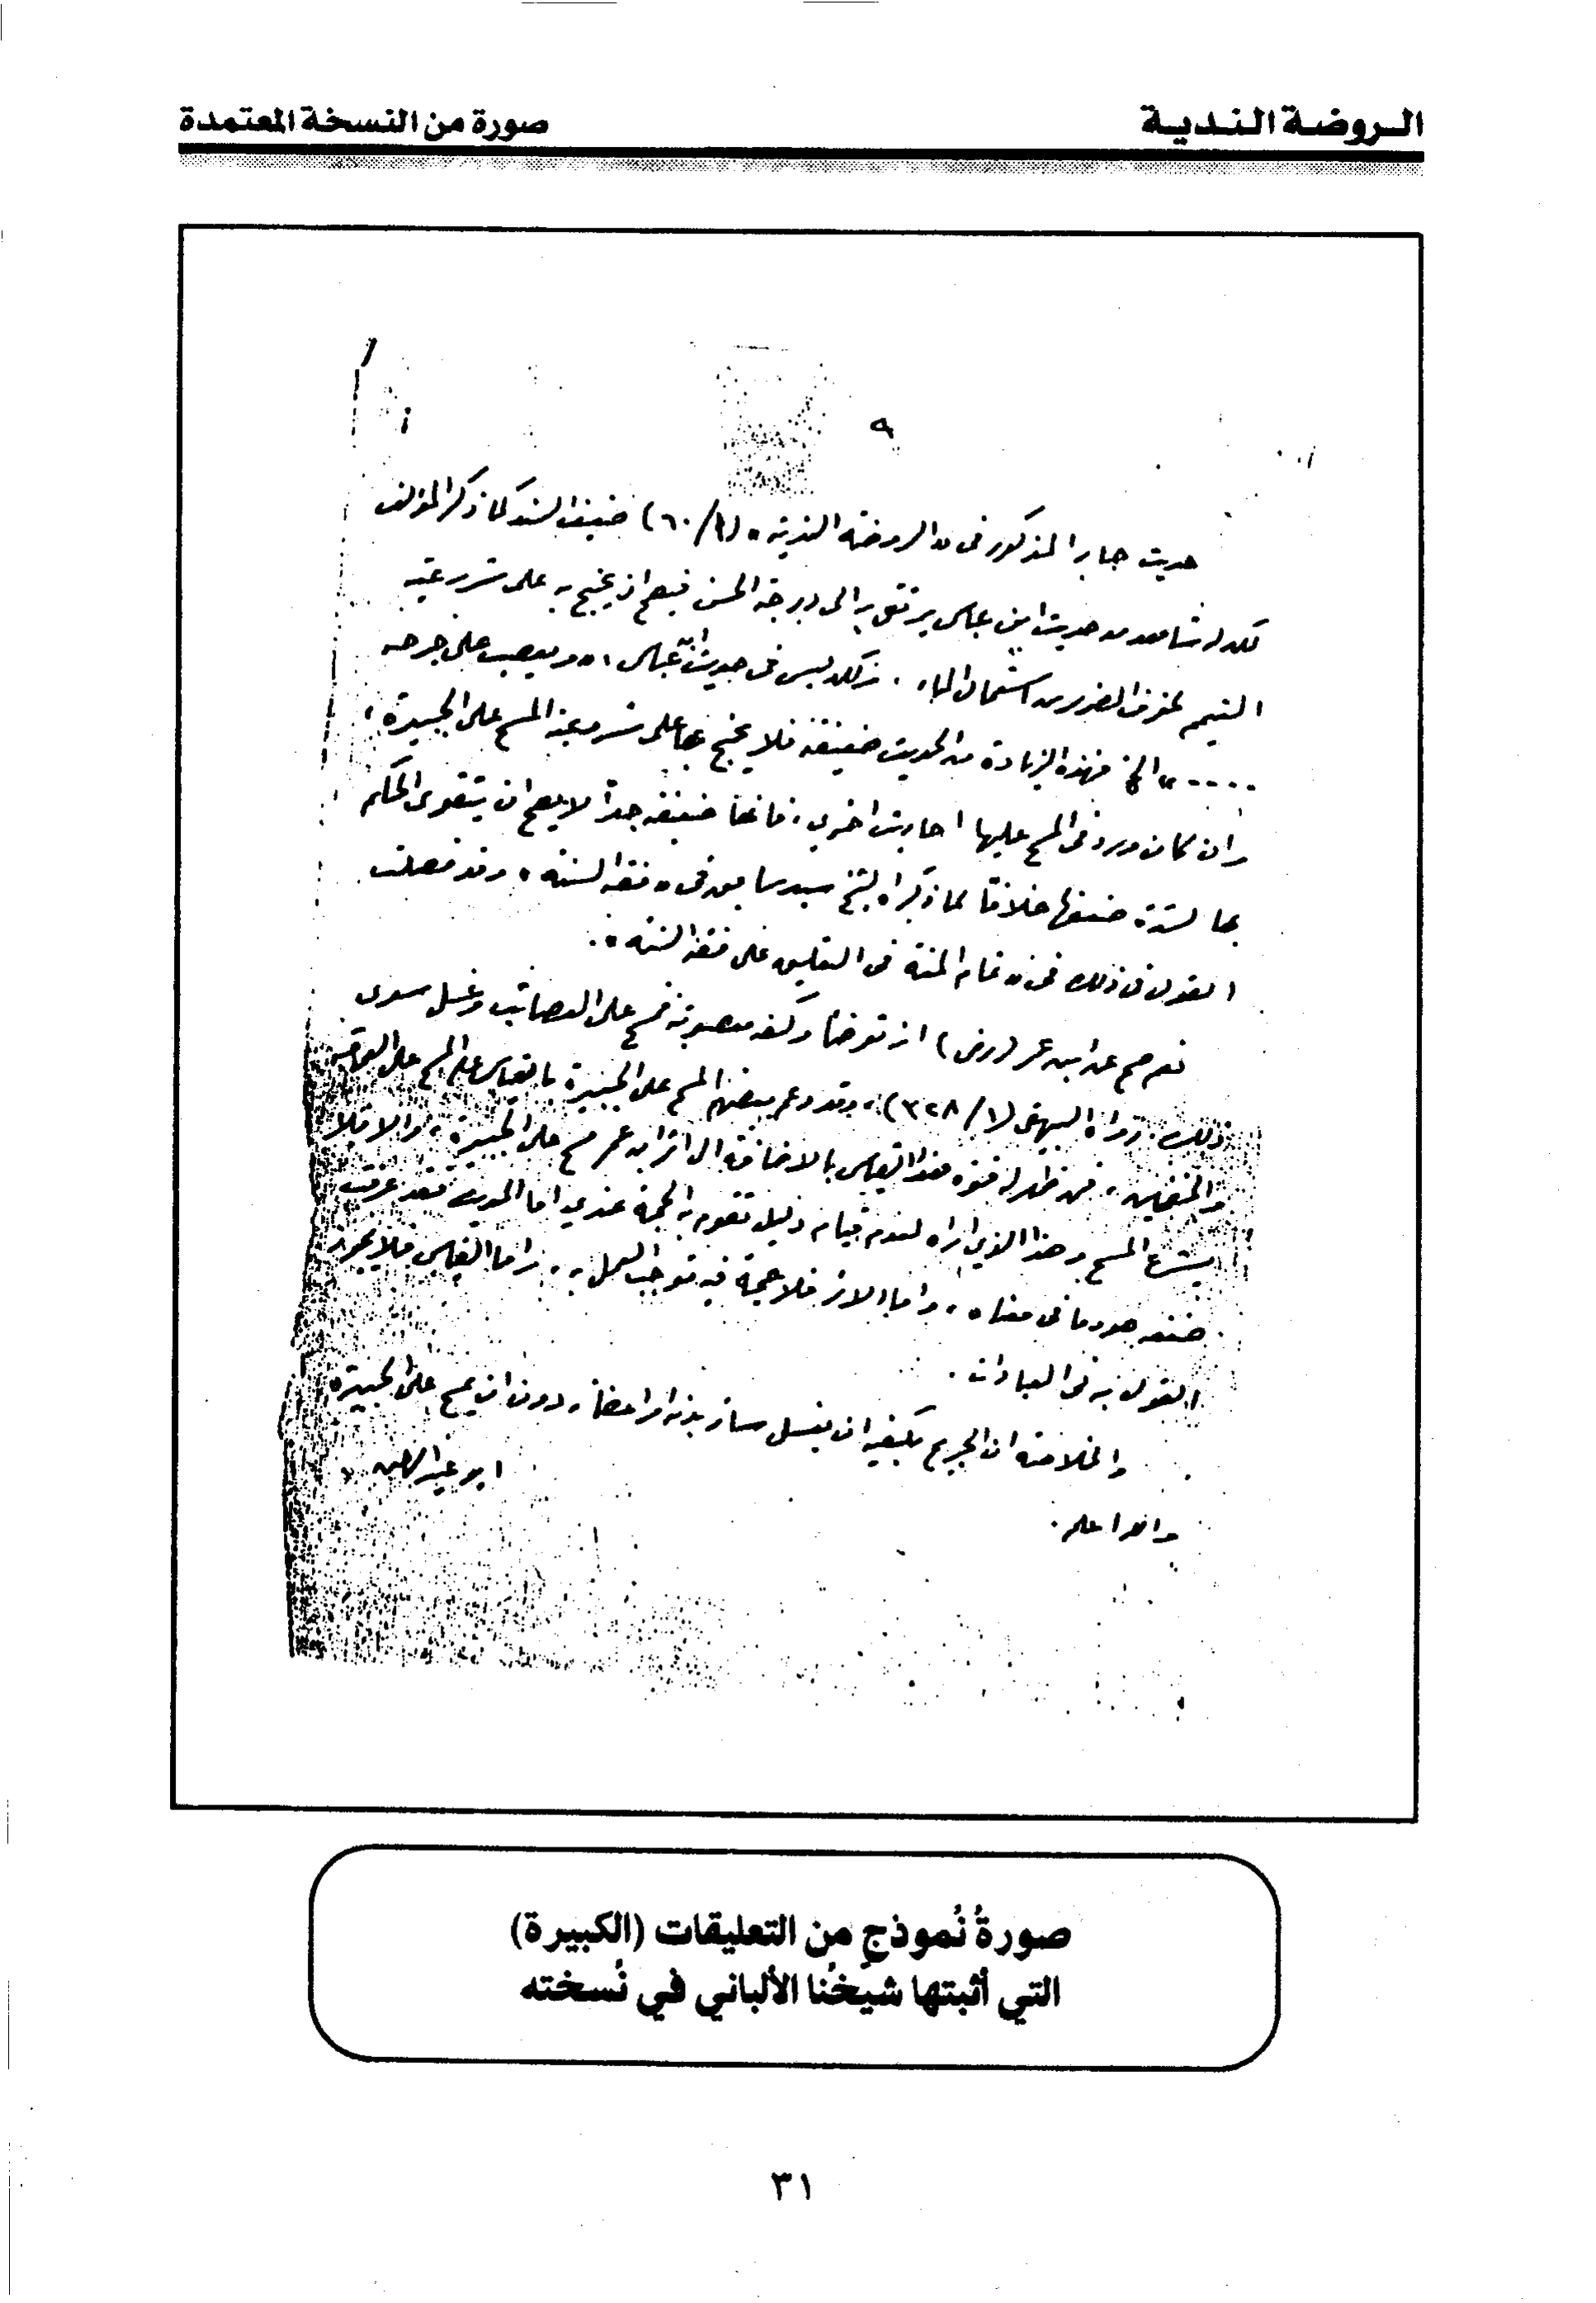 الروضة الندية
صورة من النسخة المعتمدة
٩
حديث جابر المذكور في «الروضة الندية» (١/٦٠) ضعيف السند كما ذكر المؤلف
لكن له شاهد من حديث ابن عباس يرتقي به الى درجة الحسن فيصح ان يحتج به على شرعية
التيمم لخوف الضرر من استعمال الماء. ولكن ليس في حديث ابن عباس: «ويعصب على جرحه
....» الخ فهذه الزيادة من الحديث ضعيفة فلا يحتج بها على شروعية المسح على الجبيرة،
وان كان ورد في المسح عليها احاديث اخرى، فانها ضعيفة جداً لا يصح ان يتقوى الحكم
بها لشدة ضعفها خلافاً لما ذكره الشيخ سيد سابق في «فقه السنة» وقد فصلت
القول في ذلك في «تمام المنة في التعليق على فقه السنة».
نعم صح عن ابن عمر (رض) انه توضأ وكفه معصوبة فمسح على العصائب وغسل سوى
ذلك. رواه البيهقي (١/٣٢٨)، وقد دعم بعضهم المسح على الجبيرة بالقياس على المسح على العمامة
والخفين، فمن ظهر له قوة هذا القياس بالاضافة الى اثر ابن عمر مسح على الجبيرة، والا فلا
يشرع المسح وهذا الذي اراه لعدم قيام دليل تقوم به الحجة عندي اما الحديث فقد عرفت
ضعفه هو وما في معناه، واما الاثر فلا حجة فيه توجب العمل به، واما القياس فلا يجوز
القول به في العبادات.
والخلاصة ان الجريح يكفيه ان يغسل سائر بدنه او اعضائه دون ان يمسح على الجبيرة
والله اعلم.
ابو عبد الرحمن
صورةُ نُموذجٍ من التعليقات (الكبيرة)
التي أثبتها شيخُنا الألباني في نُسخته
٣١